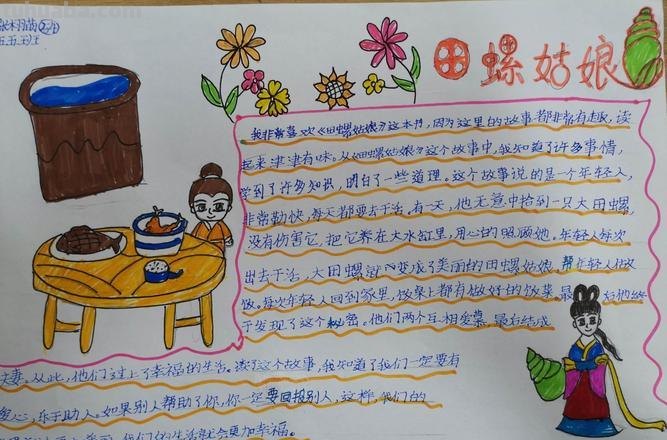 田螺姑娘
我非常喜欢《田螺姑娘》这本书,因为这里的故事都非常有趣,读
起来津津有味。从《田螺姑娘》这个故事中,我知道了许多事情,
学到了许多知识,明白了一些道理。这个故事说的是一个年轻人,
非常勤快,每天都要去干活,有一天,他无意中拾到一只大田螺,
没有伤害它,把它养在大水缸里,用心的照顾她。年轻人每次
出去干活,大田螺 变成了美丽的田螺姑娘,帮年轻人做
饭。每次年轻人回到家里,饭桌上都有做好的饭菜。最后他终
于发现了这个秘密。他们两个互相爱慕,最后结成
夫妻。从此,他们过上了幸福的生活。读了这个故事,我知道了我们一定要有
爱心,乐于助人。如果别人帮助了你,你一定要回报别人,这样,我们的
我们的生活就会更加幸福。